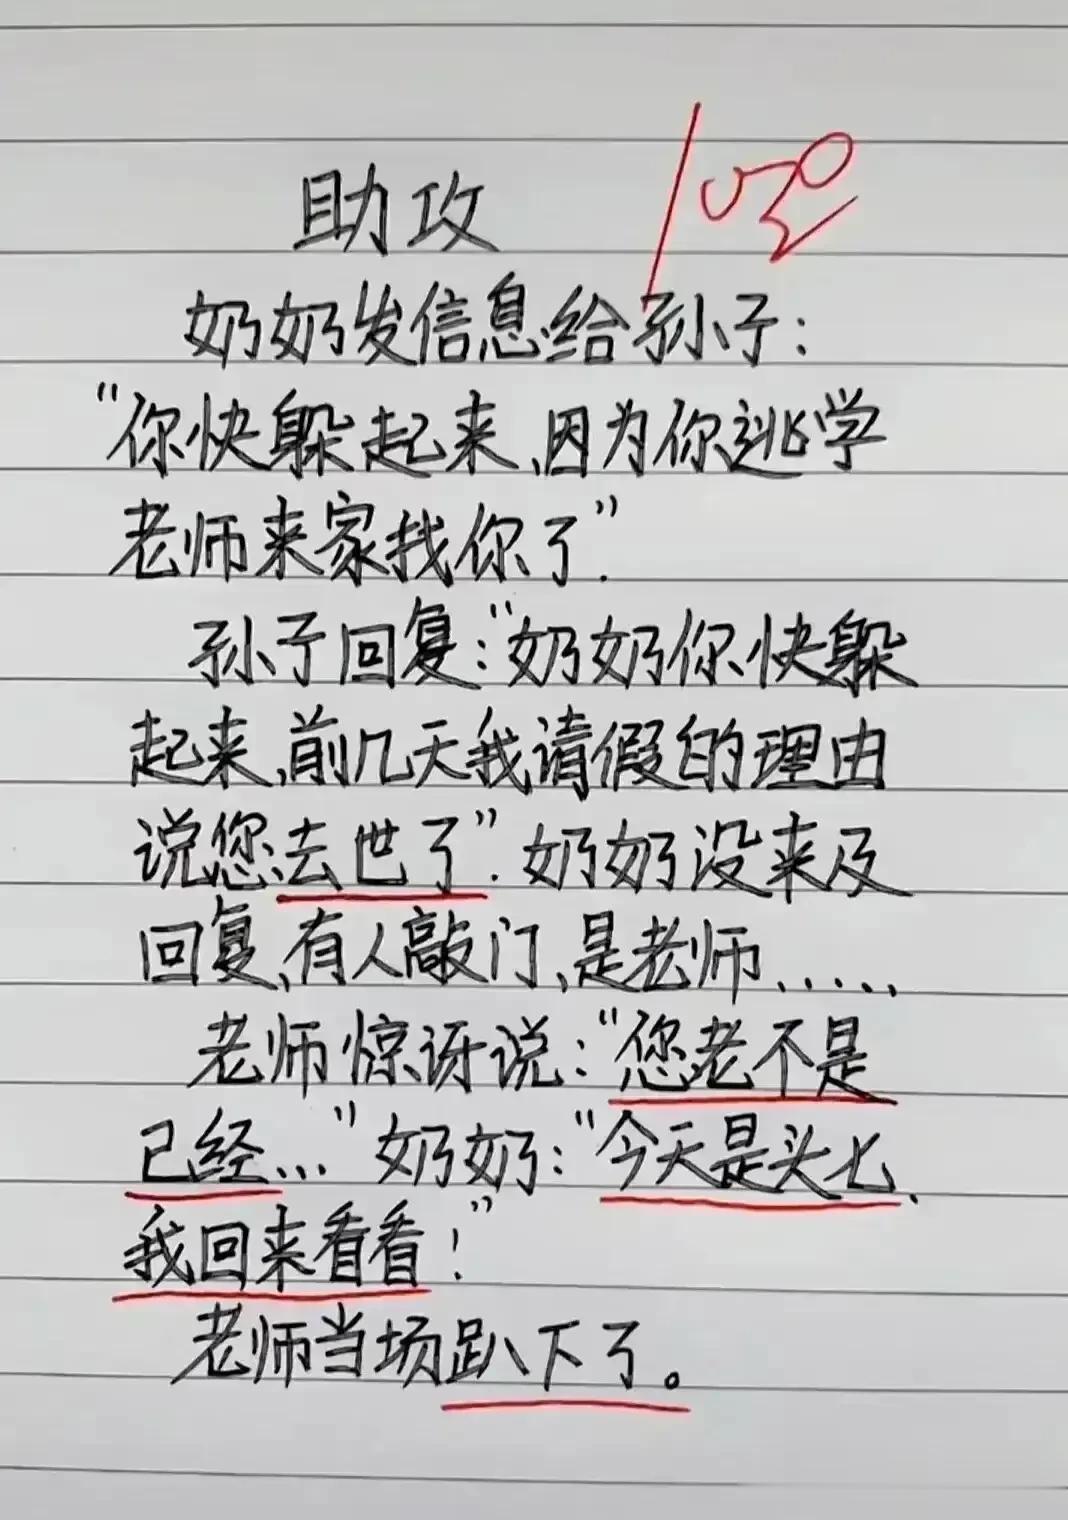 助攻
奶奶发信息给孙子：
“你快躲起来、因为你逃学
老师来家找你了”.
孙子回复：“奶奶你快躲
起来、前几天我请假的理由
说您去世了”.奶奶没来及
回复、有人敲门、是老师......
老师惊讶说：“您老不是
已经...”奶奶：“今天是头七、
我回来看看！”
老师当场趴下了。